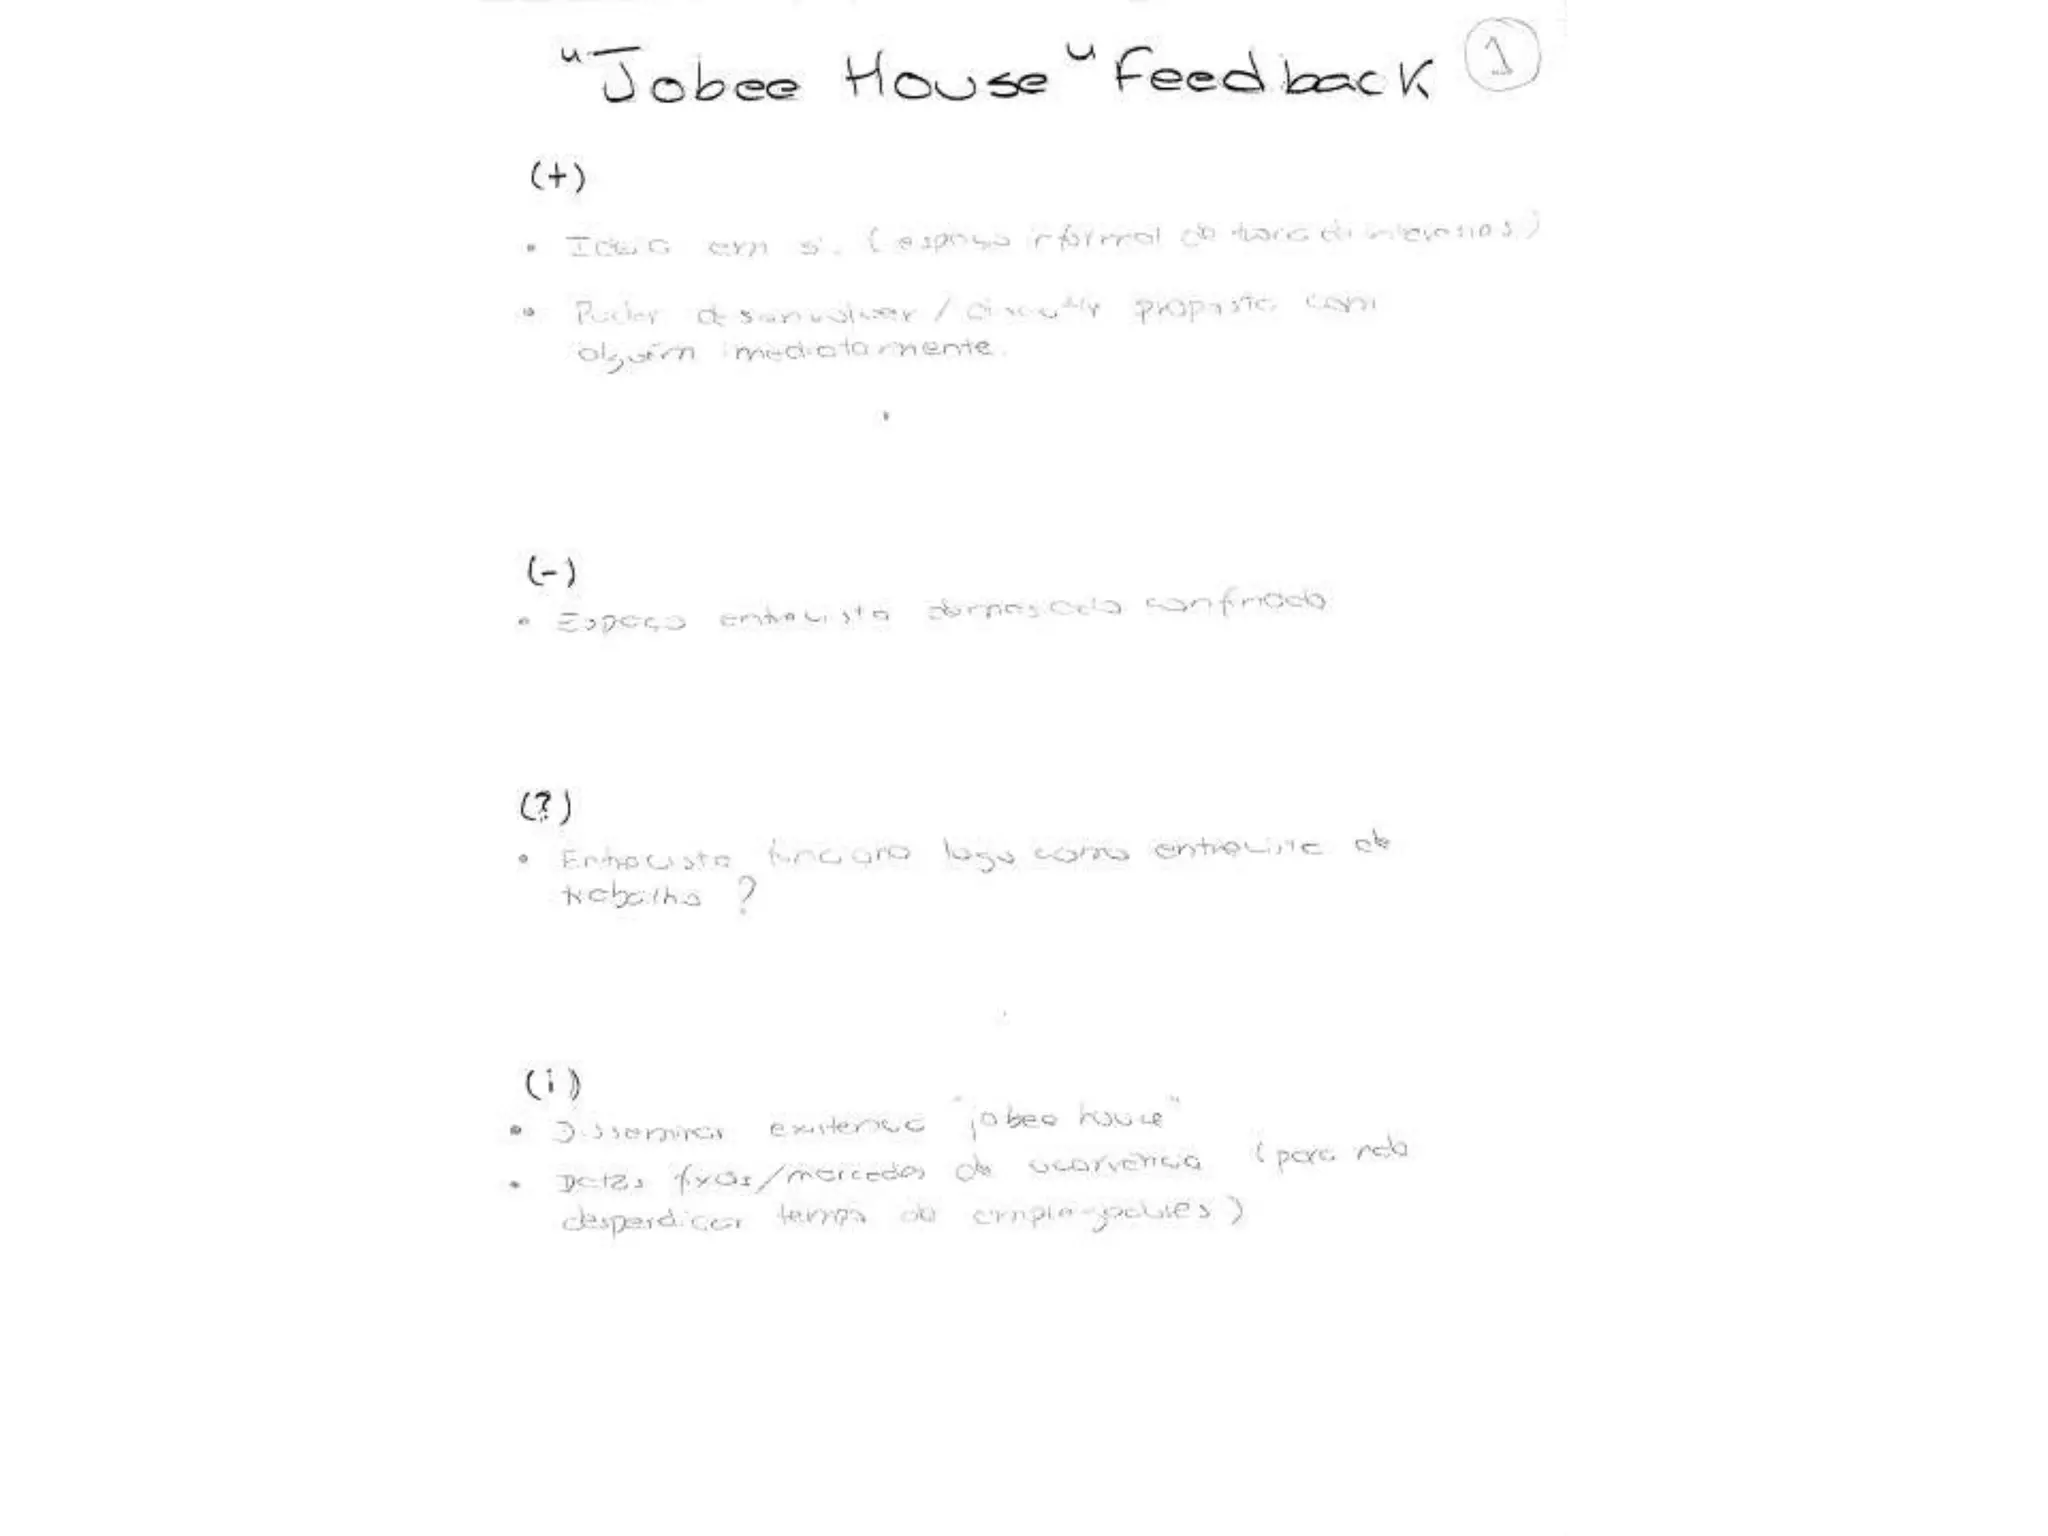 "Jobee House" Feedback 1
(+)
• Ideia em si. (espaço informal de troca de interesses)
• Poder desenvolver / discutir proposta com
alguém imediatamente.
(-)
• Espaço entrevista demasiado confinado
(?)
• Entrevista funciona logo como entrevista de
trabalho ?
(i)
• Disseminar existência "jobee house"
• Datas fixas/marcadas de ocorrência (para não
desperdiçar tempo de)